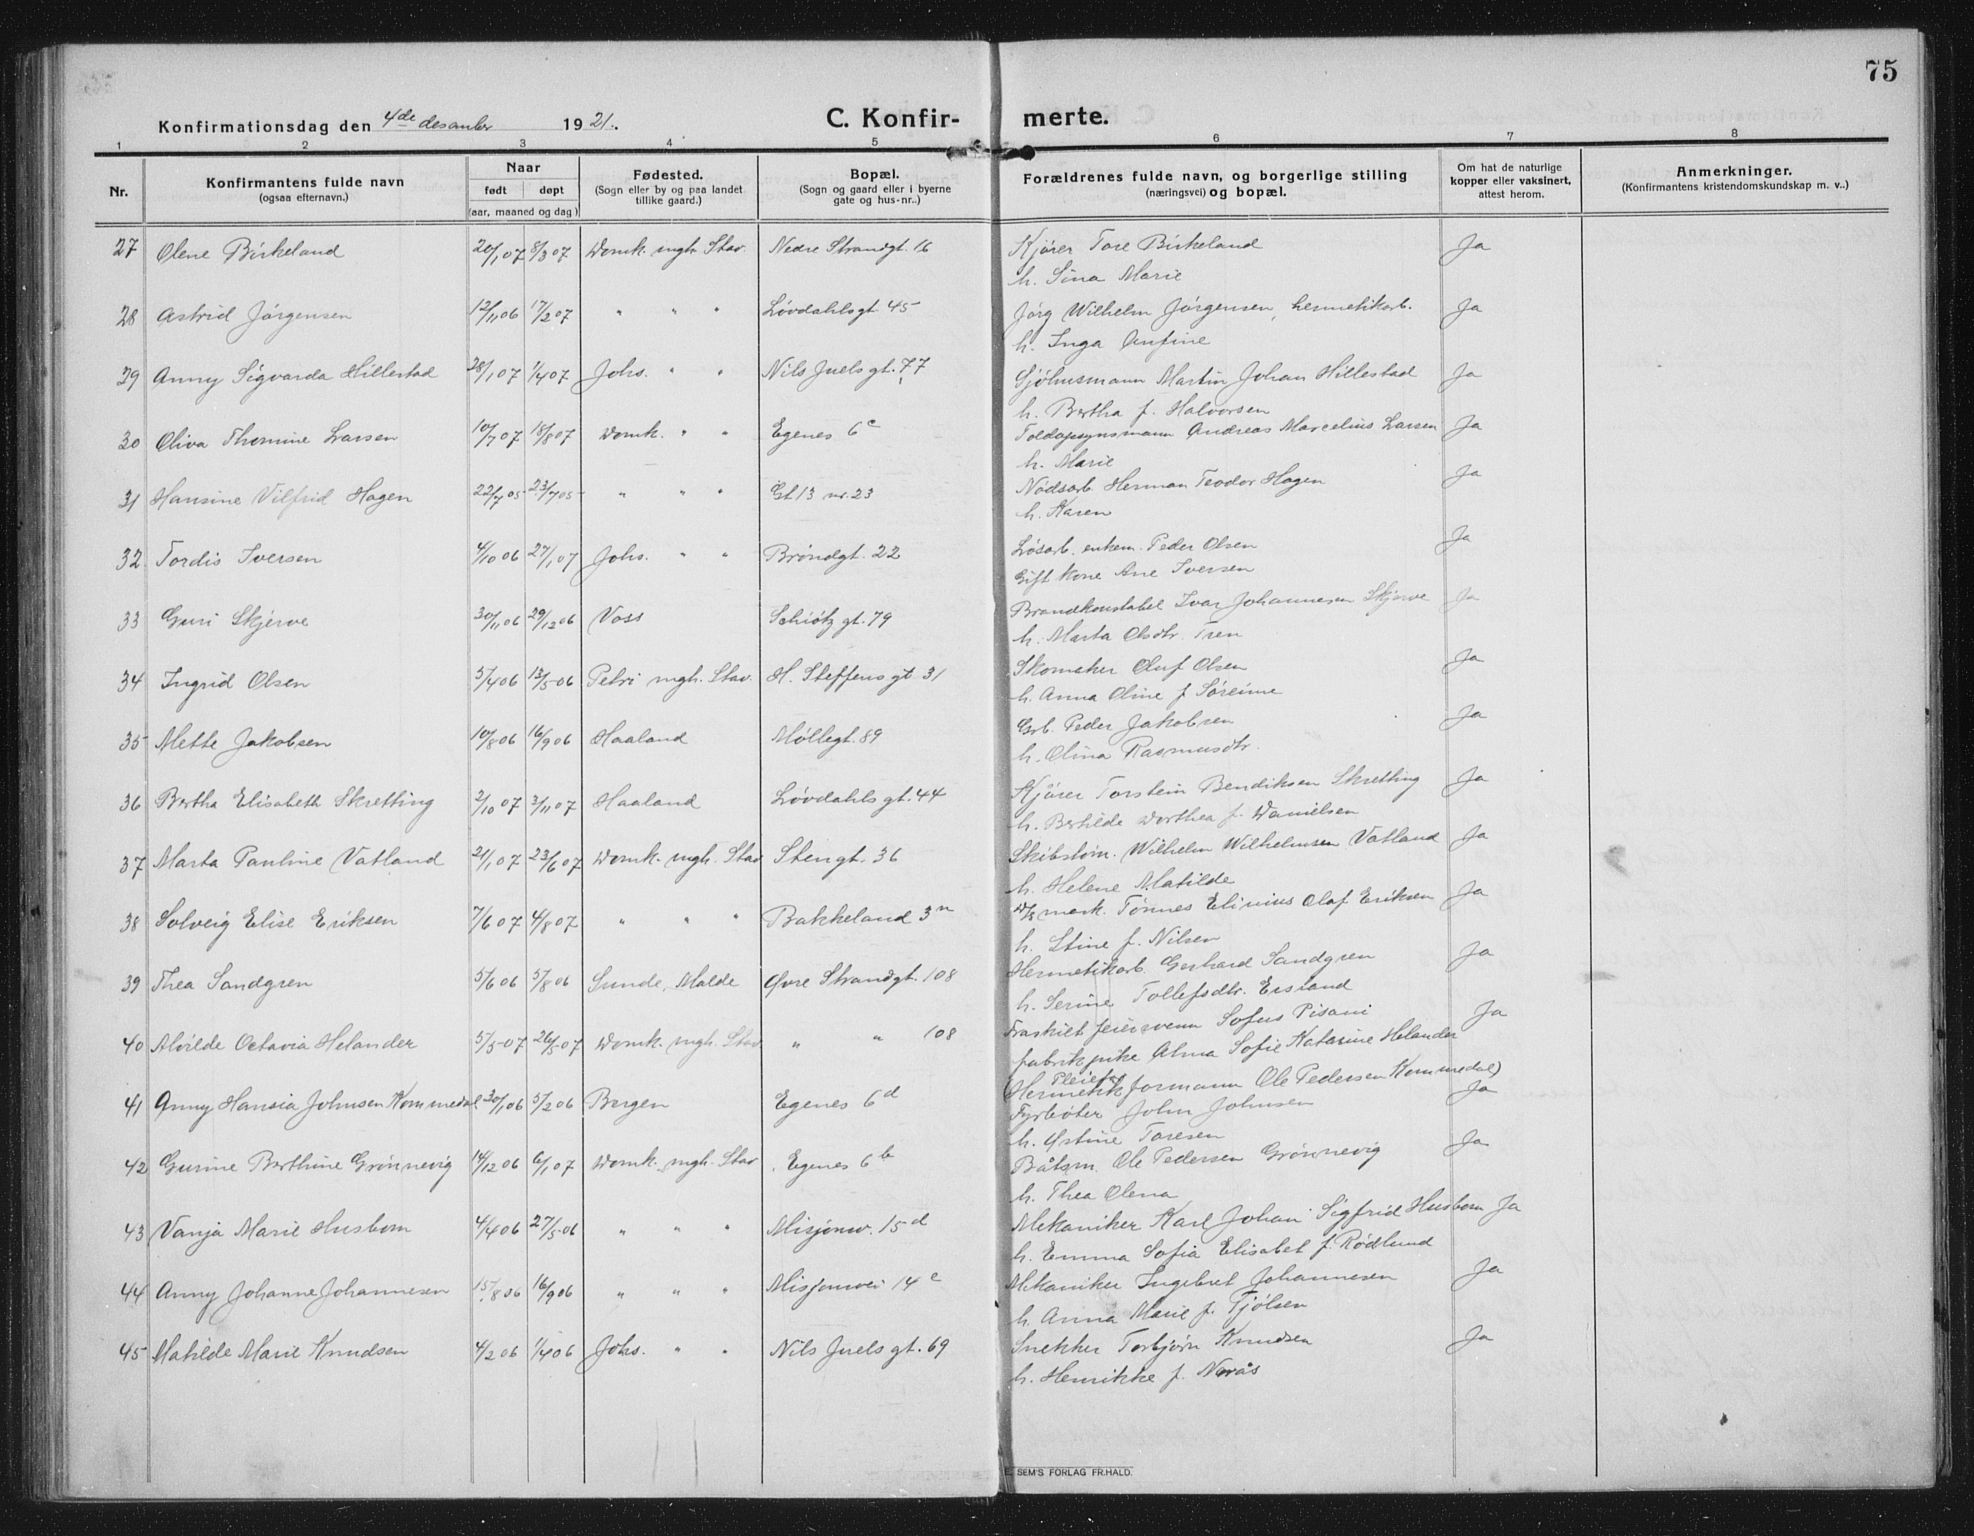 75
Konfirmationsdag den 4de desember 1921.
C. Konfirmerte.
1 2 3 4 5 6 7 8
Nr.
Konfirmantens fulde navn
(ogsaa efternavn.)
Naar
født døpt
(aar, maaned og dag)
Fødested.
(Sogn eller by og paa landet
tillike gaard.)
Bopæl.
(Sogn og gaard eller i byerne
gate og hus-nr..)
Forældrenes fulde navn, og borgerlige stilling
(næringsvei) og bopæl.
Om hat de naturlige
kopper eller vaksinert,
attest herom.
Anmerkninger.
(Konfirmantens kristendomskundskap m. v..)
27 Olene Birkeland 20/1 07 8/3 07 Domk. mgh. Stav. Nedre Strandgt. 16 Kjører Tore Birkeland Ja
h. Sina Marie
28 Astrid Jørgensen 12/11 06 17/2 07 " " " Løvdahlsgt 45 Jørg Wilhelm Jørgensen, hermetikarb. Ja
h. Inga Anfine
29 Anny Sigvarda Hillestad 28/1 07 1/4 07 Johs. " " Nils Juels gt. 77 Sjøhusmann Martin Johan Hillestad Ja
h. Bertha f. Halvorsen
30 Oliva Thomine Larsen 10/7 07 18/8 07 Domk. " " Egenes 6c Toldopsynsmann Andreas Marcelius Larsen Ja
h. Marie
31 Hansine Vilfrid Hagen 22/7 05 23/7 05 " " " Gt 13 nr. 23 Nødsarb. Herman Teodor Hagen Ja
h. Karen
32. Tordis Iversen 4/10 06 27/1 07 Johs. " " Brøndgt. 22 Løsarb. enkem. Peder Olsen Ja
Gift kone Ane Iversen
33 Guri Skjerve 30/11 06 29/12 06 Voss Schiøtz gt. 79 Brandkonstabel Ivar Johannesen Skjerve Ja
h. Marta Olsdtr. Tren
34 Ingrid Olsen 5/4 06 13/5 06 Petri mgh. Stav. H. Steffens gt 31 Skomaker Oluf Olsen Ja
h. Anna Oline f Søreime
35 Mette Jakobsen 10/8 06 16/9 06 Haaland Møllegt. 89 Grb. Peder Jakobsen Ja
h. Olina Rasmusdtr.
36 Bertha Elisabeth Skretting 2/10 07 3/11 07 Haaland Løvdahls gt. 44 Kjører Torstein Bendiksen Skretting Ja
h. Bertilde Dorthea f. Danielsen
37 Marta Pauline Vatland 21/1 07 23/6 07 Domk. mgh. Stav Stengt. 36 Skibstøm. Wilhelm Wilhelmsen Vatland Ja
h. Helene Matilde
38 Solveig Elise Eriksen 7/6 07 4/8 07 " " " Bakkeland 3n D/s mask. Tønnes Elinius Olaf Eriksen Ja
h. Stine f. Nilsen
39 Thea Sandgren 5/6 06 5/8 06 Sunde, Malde Øvre Strandgt. 108 Hermetikarb. Gerhard Sandgren Ja
h. Serine Tollefsdtr. Ersland
40 Alvilde Octavia Helander 5/5 07 26/5 07 Domk. mgh. Stav " " 108 Fraskilt feiersvenn Sofus Pisani Ja
fabrikpike Alma Sofie Katarine Helander
Pleiefar
41 Anny Hansia Johnsen Kommedal 30/1 06 5/2 06 Bergen Egenes 6d Hermetikformann Ole Pedersen Kommedal) Ja
Fyrbøter John Johnsen
h. Østine Toresen
42 Gurine Berthine Grønnevig 14/12 06 6/1 07 Domk. mgh. Stav Egenes 6b Båtsm. Ole Pedersen Grønnevig Ja
h. Thea Olena
43 Vanja Marie Husbom 4/4 06 27/5 06 " " " Misjonsv. 15d Mekaniker Karl Johan Sigfrid Husbom Ja
h. Emma Sofia Elisabet f. Rødlund
44 Anny Johanne Johannesen 15/8 06 16/9 06 " " " Misjonsvei 14c Mekaniker Ingebret Johannesen Ja
h. Anna Marie f. Tjølsen
45 Matilde Marie Knudsen 4/2 06 1/4 06 Johs. " " Nils Juels gt. 69 Snekker Torbjørn Knudsen Ja
h. Henrikke f. Norås
E. SEM'S FORLAG FR.HALD.